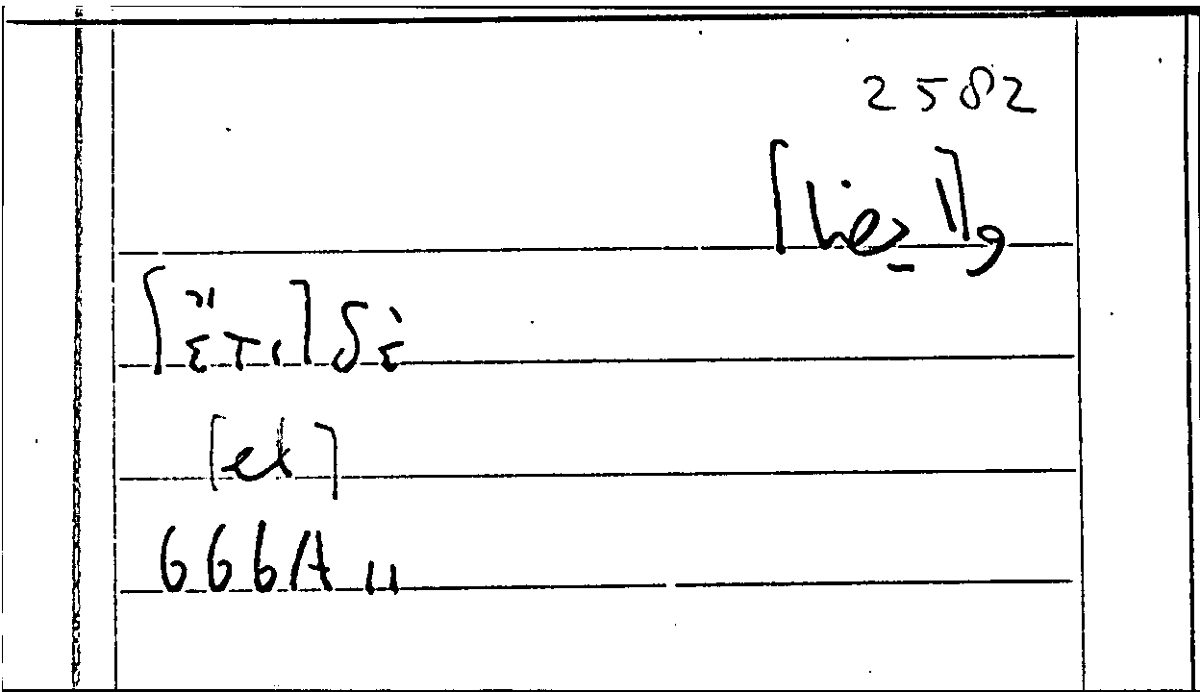 2582
[ἔτι] δὲ
[et]
666A 11